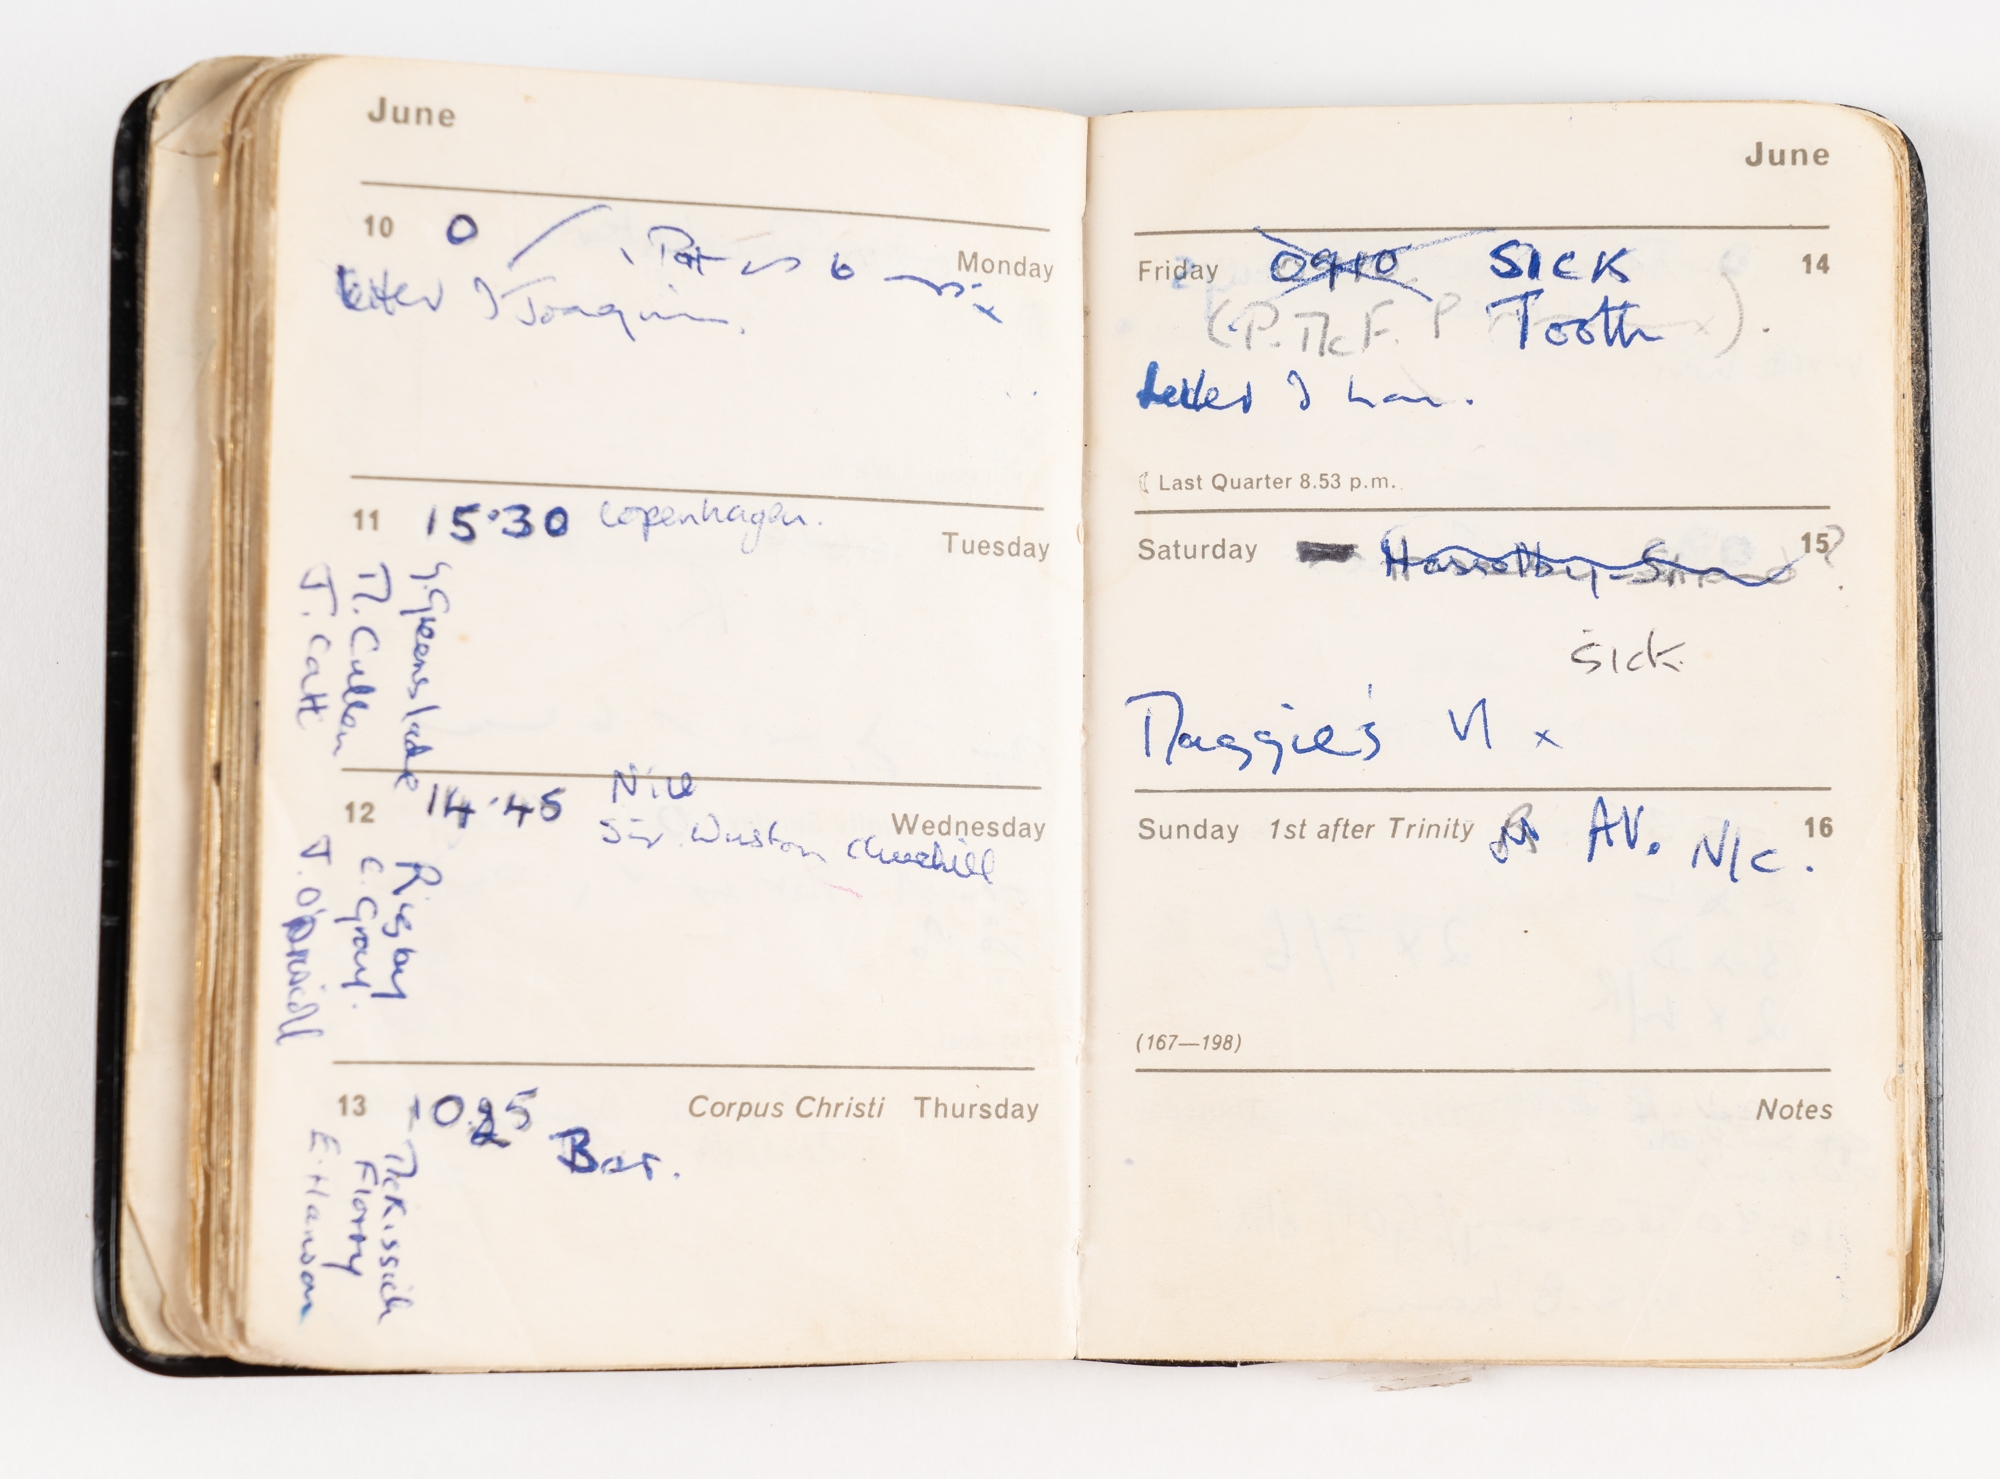 June
10 0 Monday
Letter J Joaquin.
11 15.30 Copenhagen. Tuesday
G. Greenslade
M. Cullen
J. Catt
12 14.45 Nice Wednesday
Sir Winston Churchill
Rigby
C. Gray.
13 Corpus Christi Thursday
Bar.
McKissick
Florry
E. Hanson
June
Friday 0910 SICK 14
(P. McF. P Tooth ).
Letter J
( Last Quarter 8.53 p.m.
Saturday Hasselby-Strand 15 ?
Sick
Maggie's VI x
Sunday 1st after Trinity AV. N/C. 16
(167—198)
Notes